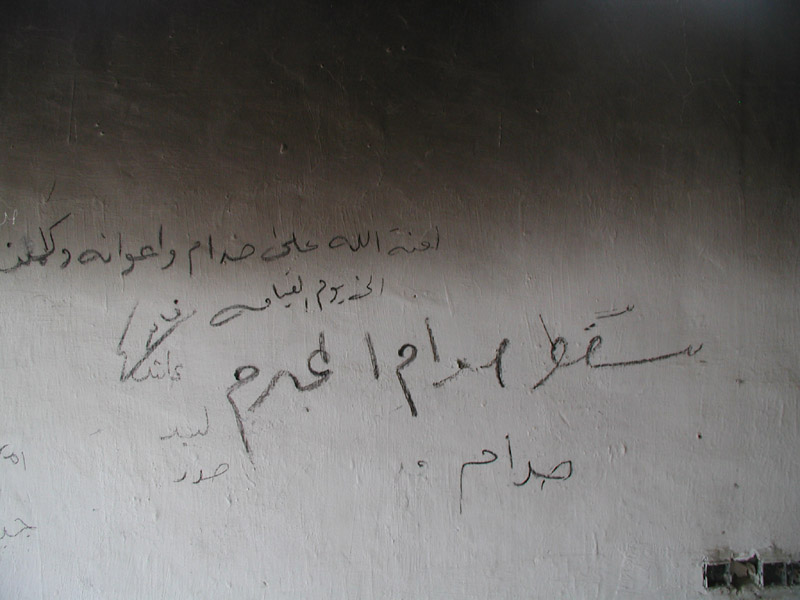 لعنة الله على صدام واعوانه وكل من
الى يوم القيامه
سقط صدام المجرم
صدام
صدر